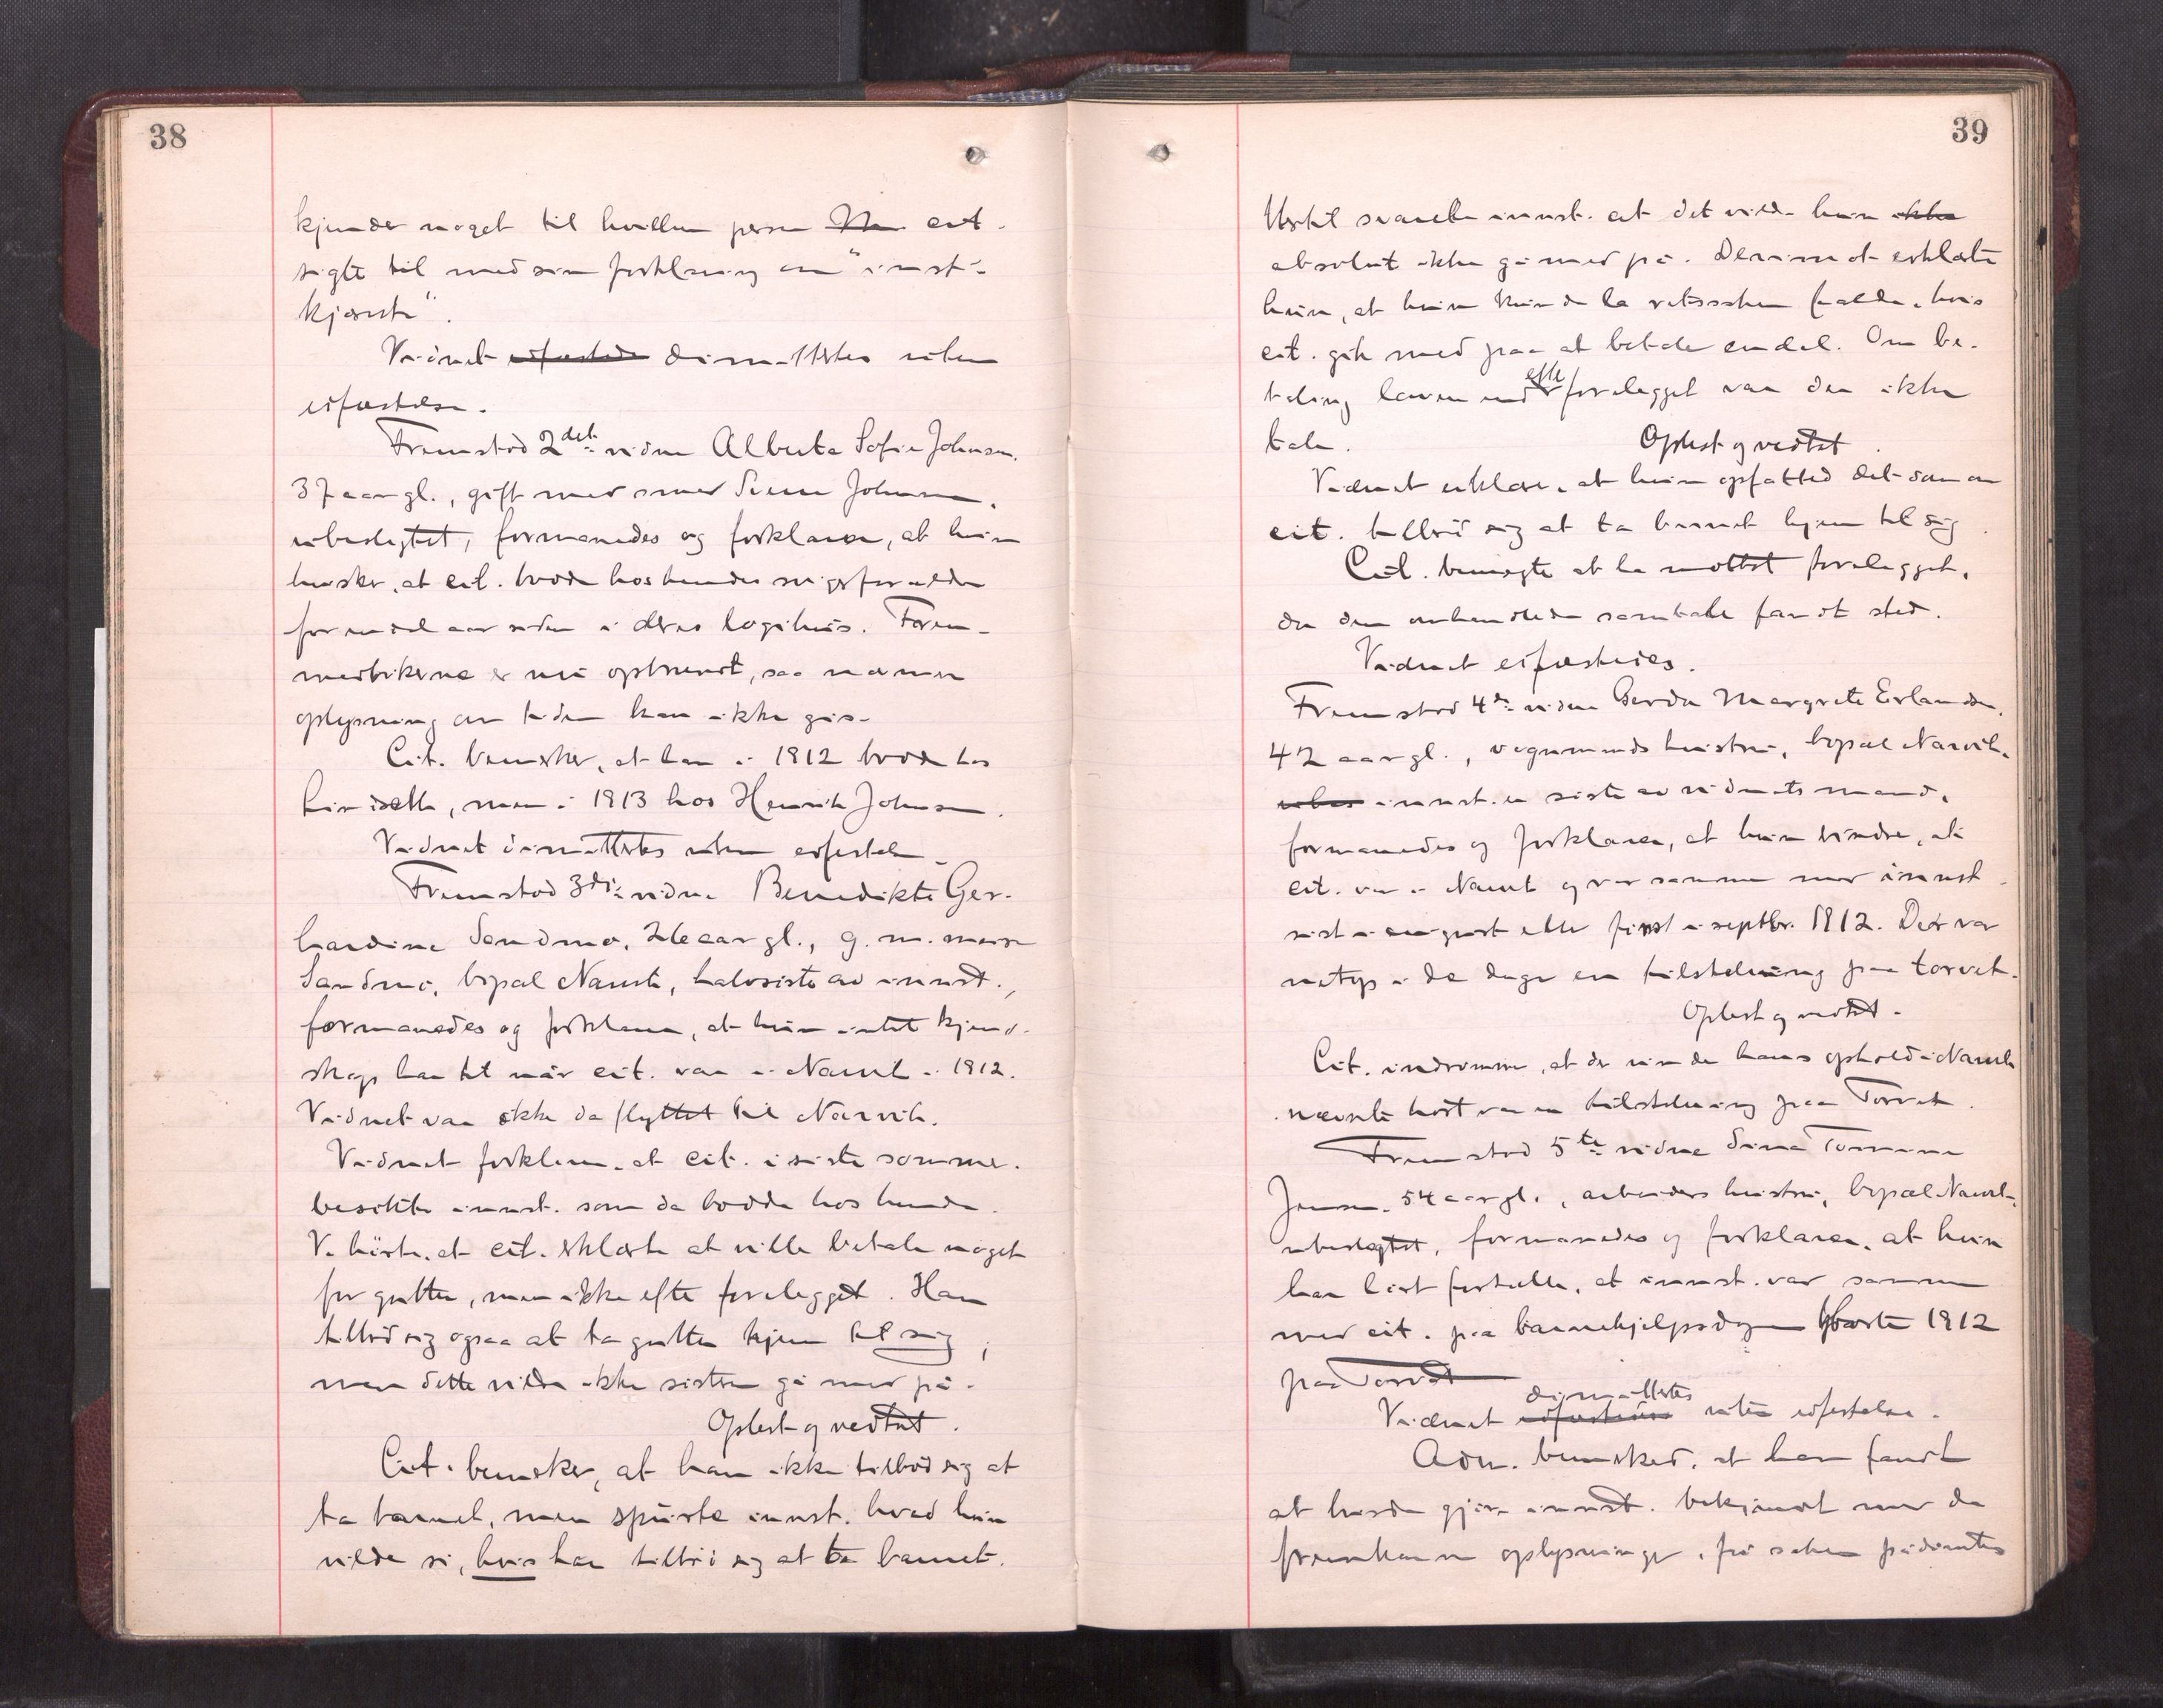 38
kjender noget til hvilken person cit.
sigte til med sin forklaring om "innst's
kjæreste".
Vidnet eidfæstedes dimittertes uten
eidfæstelse.
Fremstod 2det vidne Alberta Sofie Johnsen,
37 aar gl., gift med smed Simon Johnsen,
ubeslegtet, formanedes og forklarer, at hun
husker, at cit. bodde hos hendes svigerforeldre
for endel aar siden i deres logihus. Frem-
medbøkerne er nu opbrændt, saa nærmere
oplysning om tiden kan ikke gis.
Cit. bemerker, at han i 1912 bodde hos
, men i 1913 hos Henrik Johnsen.
Vidnet dimittertes uten eidfestelse.
Fremstod 3die vidne Benedikte Ger-
hardine Sandmo, aar gl., g. m. murer
Sandmo, bopæl Narvik, halvsøster av innst.,
formanedes og forklarer, at hun intet kjend-
skap har til når cit. var i Narvik i 1912.
Vidnet var ikke da flyttet til Narvik.
Vidnet forklarer, at cit. i siste sommer
besøkte innst. som da bodde hos hende.
V. hørte, at cit. erklærte at ville betale noget
for gutten, men ikke efter forelegget. Han
tilbød sig ogsaa at ta gutten hjem til sig,
men dette vilde ikke søsteren gå med på.
Oplest og vedtat.
Cit. bemerker, at han ikke tilbød sig at
ta barnet, men spurte innst. hvad hun
vilde si, hvis han tilbød sig at ta barnet.
39
Hertil svarte innst. at det vilde hun ikke
absolut ikke gå med på. Derimot erklærte
hun, at hun kunde la retssaken falde, hvis
cit. gik med paa at betale endel. Om be-
taling lavere end efter forelegget var der ikke
tale. Oplest og vedtat.
Vidnet erklærer, at hun opfattet det som om
cit. tilbød sig at ta barnet hjem til sig
Cit. benegte at ha mottat forelegget,
da den omhandlede samtale fandt sted.
Vidnet eidfæstedes.
Fremstod 4de vidne Gerda Margrete Erlandsen,
42 aar gl., vognmands hustru, bopæl Narvik,
ubes innst. er søster av vidnets mand,
formanedes og forklarer, at hun erindrer, at
cit. var i Narvik og var sammen med innst.
sist i august eller først i septbr. 1912. Det var
netop i de dage en tilstelning paa torvet.
Oplest og vedtat.
Cit. indrømmer, at der under hans ophold i Narvik
nævnte høst var en tilstelning paa Torvet.
Fremstod 5te vidne Sina Tomine
Jensen, 54 aar gl., arbeiders hustru, bopæl Narvik,
ubeslegtet, formanedes og forklarer, at hun
har hørt fortælle, at innst. var sammen
med cit. paa barnehjelpsdagen høste 1912
paa Torvet
Vidnet eidfæstedes dimittertes uten eidfestelse.
Adm. bemerket, at han fandt
at burde gjøre innst. bekjendt med de
fremkomne oplysninger, før saken pådømtes